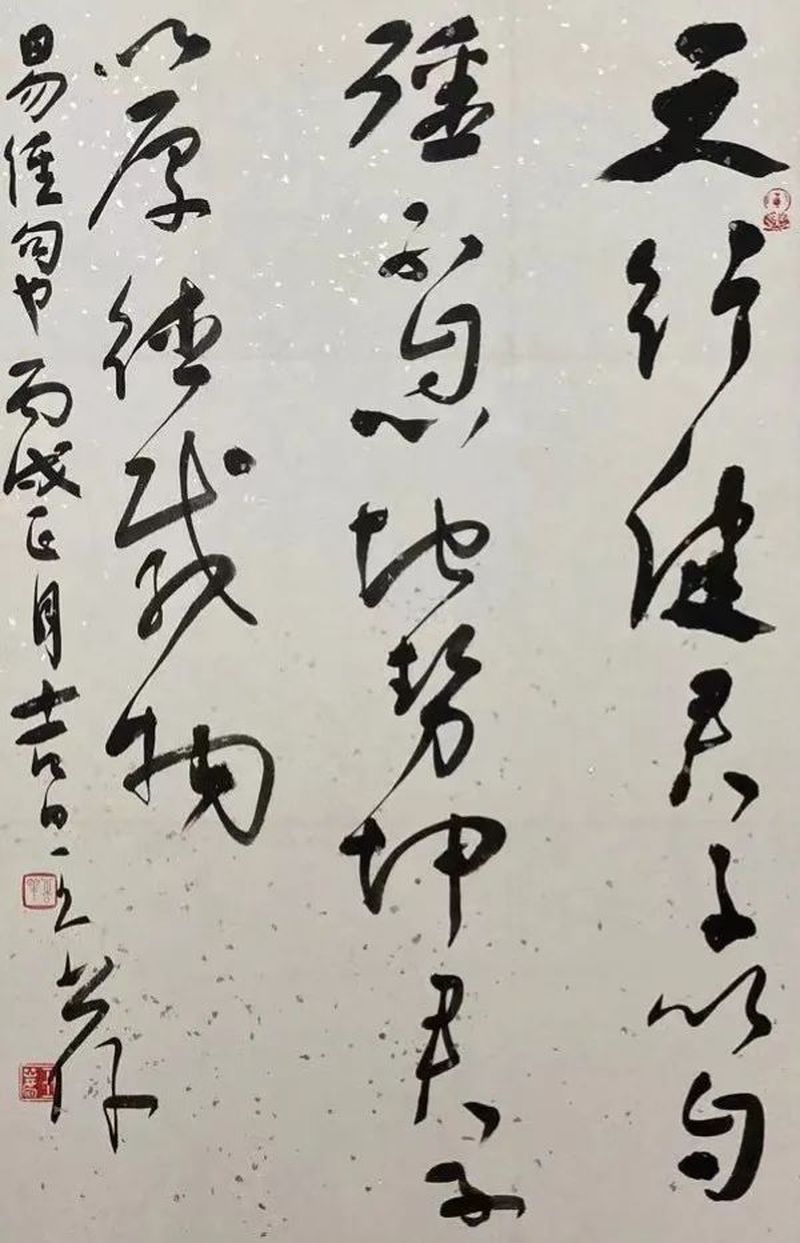 天行健君子以自
强不息地势坤君子
以厚德载物
易经句也丙戌正月吉日王